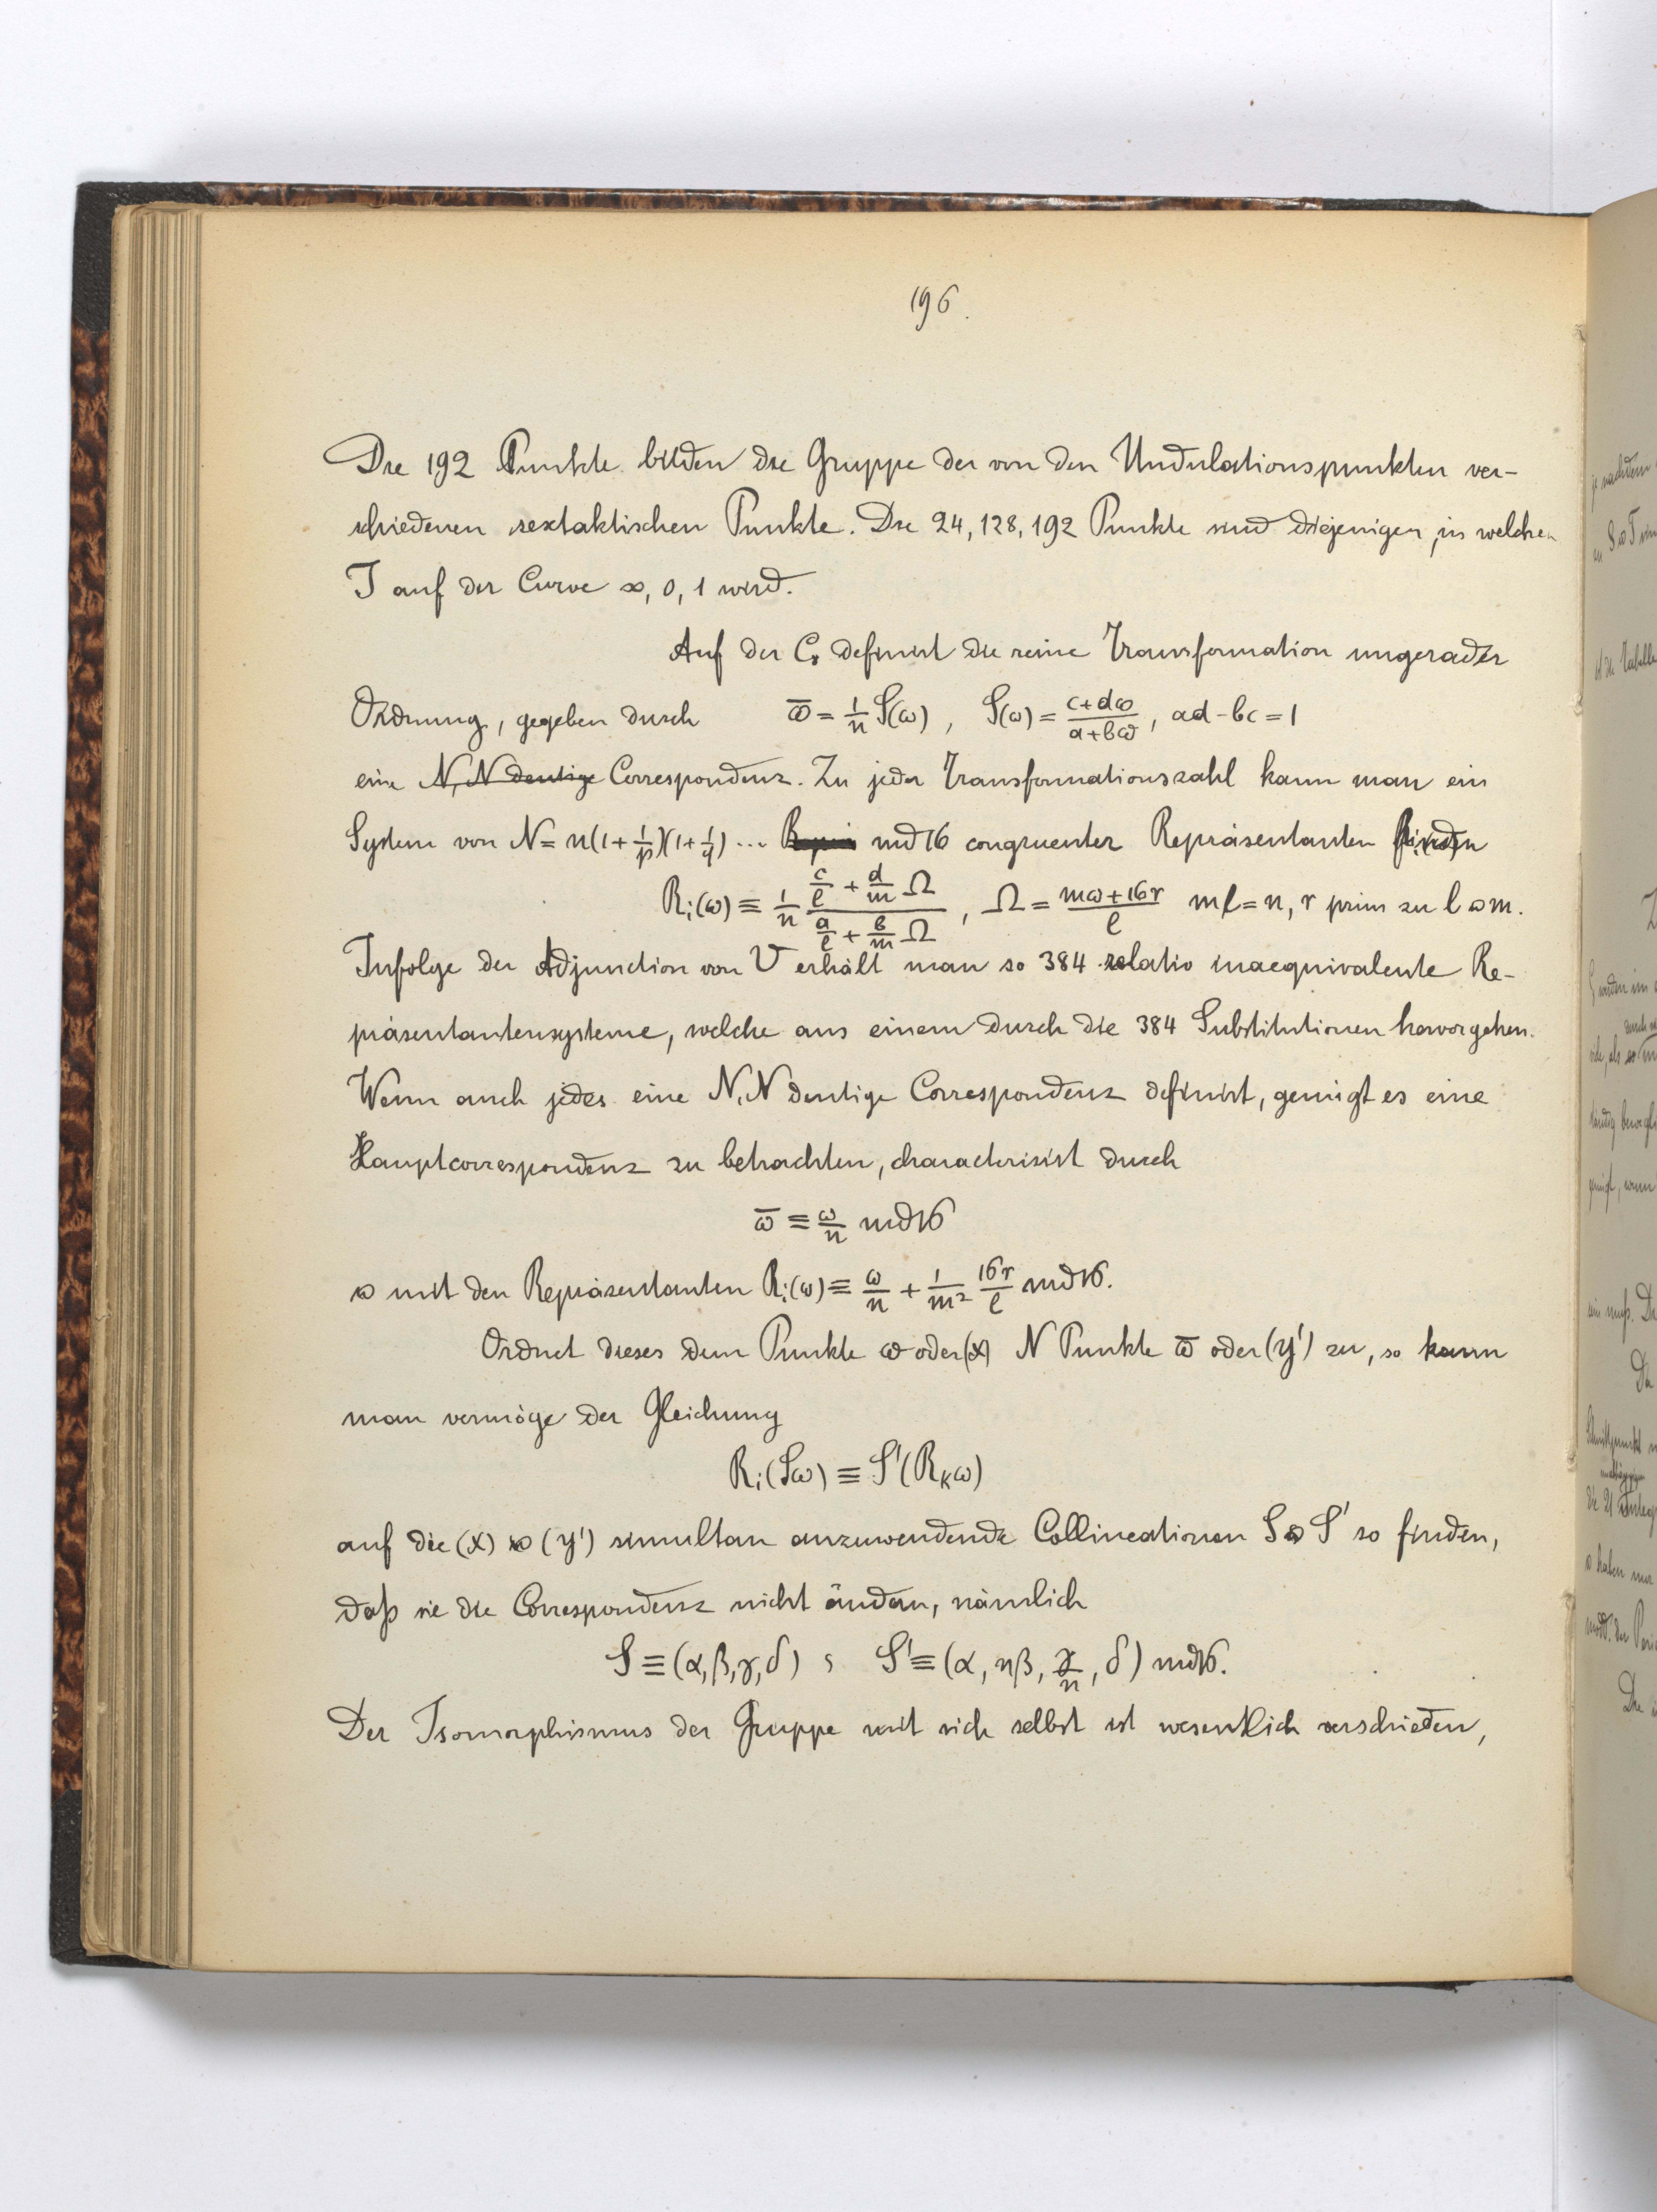 196.
Die 192 Punkte bilden die Gruppe der von den Undulationspunkten ver-
schiedenen sextaktischen Punkte. Die 24, 128, 192 Punkte sind diejenigen, in welchen
J auf der Curve ∞, 0, 1 wird.
Auf der C₈ definirt die reine Transformation ungerader
Ordnung, gegeben durch ω̅ = 1/n S(ω), S(ω) = (c+dω)/(a+bω), ad-bc=1
eine N,N deutige Correspondenz. Zu jeder Transformationszahl kann man ein
System von N = n(1+1/p)(1+1/q)... md 16 congruenter Repräsentanten finden
Rᵢ(ω) ≡ 1/n (c/l + d/m Ω)/(a/l + b/m Ω), Ω = (mω+16r)/l ml=n, r prim zu l u m.
Infolge der Adjunction von V erhält man so 384 relativ inaequivalente Re-
präsentantensysteme, welche aus einem durch die 384 Substitutionen hervorgehen.
Wenn auch jedes eine N,N deutige Correspondenz definirt, genügt es eine
Hauptcorrespondenz zu betrachten, characterisirt durch
ω̅ ≡ ω/n md 16
u mit den Repräsentanten Rᵢ(ω) ≡ ω/n + 1/m² 16r/l md 16.
Ordnet dieses dem Punkte ω oder (x) N Punkte ω̅ oder (y') zu, so kann
man vermöge der Gleichung
Rᵢ(Sω) ≡ S'(Rₖω)
auf die (x) u (y') simultan anzuwendende Collineationen S u S' so finden,
daß sie die Correspondenz nicht ändern, nämlich
S ≡ (α,β,γ,δ) ; S' ≡ (α, nβ, γ/n, δ) md 16.
Der Isomorphismus der Gruppe mit sich selbst ist wesentlich verschieden,